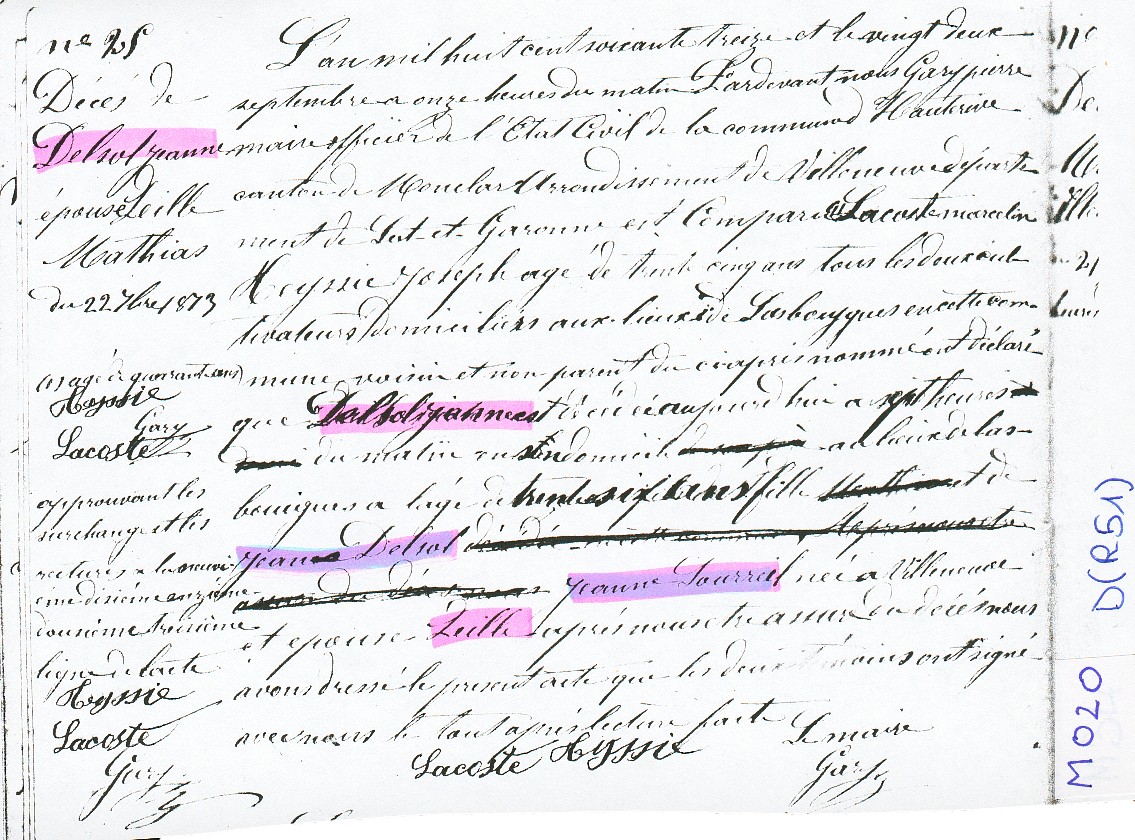 nº 25
Décés de
Delsol jeanne
épouse Leille
Mathias
du 22 7bre 1873
(1) agé de quarante ans
Heyssie
Gary
Lacoste
approuvant les
surcharges et les
ratures a la
dixième onzième
douzième treizième
ligne de l'acte
Heyssie
Lacoste
Gary
L'an mil huit cent soixante treize et le vingt deux
septembre a onze heures du matin Pardevant nous Gary pierre
maire officier de l'Etat Civil de la commune d'Hauterive
canton de Monclar Arrondissement de Villeneuve départe
ment de Lot-et-Garonne est Comparu (1) Lacoste marcelin
Heyssie Joseph agé de trente cinq ans tous les deux cul
tivateurs domiciliés aux lieux de Lasbouygues en cette com-
mune, voisin et non parent du ci après nommé ont déclaré
que Delsol jeanne est décédée aujourd'hui a sept heures
du matin en son domicile au lieux de Las-
bouigues a l'âge de trente six ans fille et de
jean Delsol
Jeanne Tourreil née a Villeneuve
et épouse Leille après nous etre assuré du décés nous
avons dressé le present acte que les deux témoins ont signé
avec nous le tout après lecture faite
Lacoste Heyssie Le maire
Gary
nº
De.
M020 D(R51)